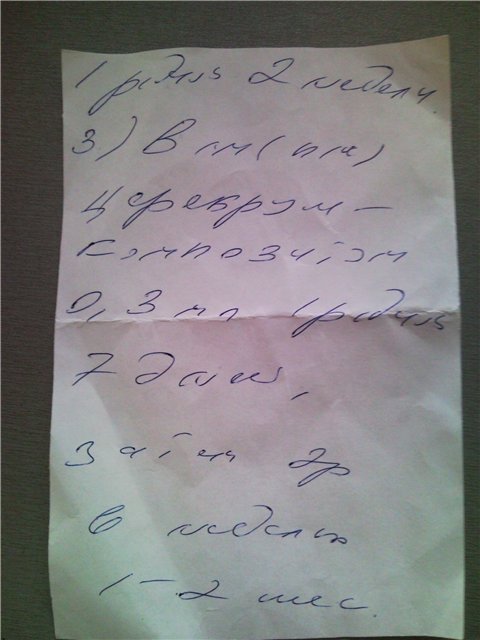 1 р/день 2 недели
3) В/м (п/к)
Церебрум-
композитум
0,3 мл 1 р/день
7 дней,
затем 2 р
в неделю
1-2 мес.